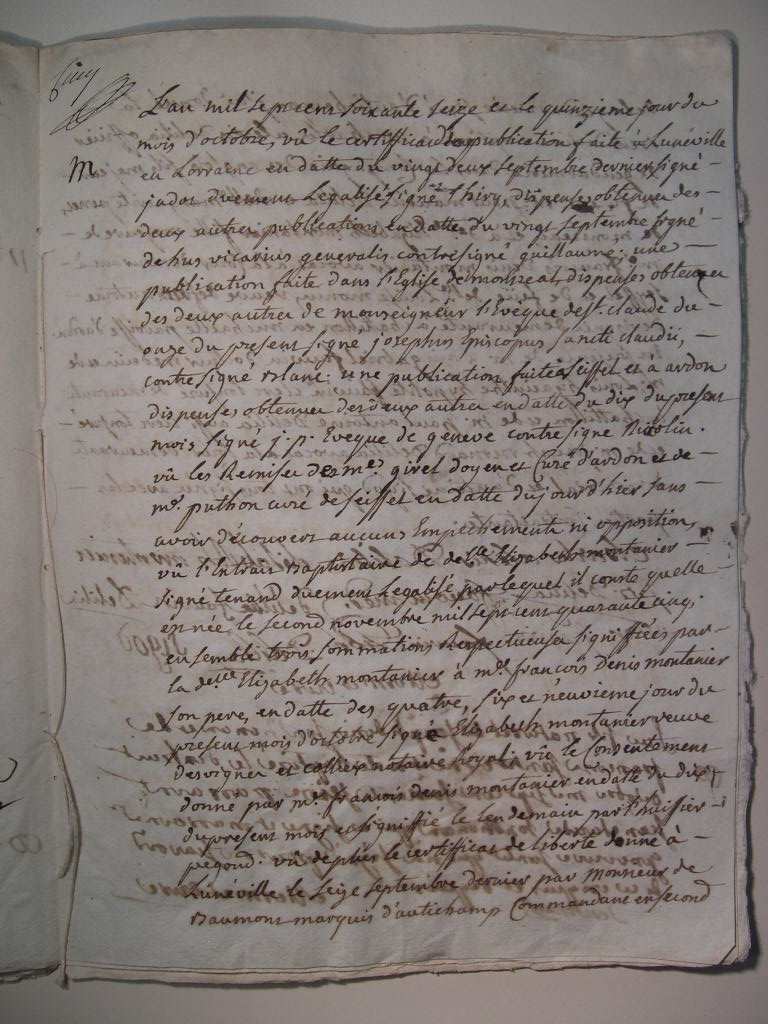 M
L'an mil sept cent soixante seize et le quinzieme jour du
mois d'octobre, vû le certifficat de publication faite à Lunéville
en Lorraine en datte du vingt deux septembre dernier signé
jadot duement Legalisé signé thiry, dispense obtenue des
deux autres publications en datte du vingt septembre signé
de hus vicarius generalis contresigné guillaume; une
publication faite dans l'Eglise de montreal, dispenses obtenues
des deux autres de monseigneur l'Eveque de St. claude du
onze du present signé josephus Episcopus sancti claudii,
contresigné blanc; une publication faite à seissel et à ardon
dispenses obtenues des deux autres en datte du dix du present
mois signé j. p. Eveque de geneve contre signé Biolin.
vû les Remises des mrs. girel doyen et Curé d'ardon et de
mr. puthon curé de seissel en datte du jour d'hier sans
avoir découvert aucuns Empechements ni opposition,
vû l'Extrait Baptistaire de delle Elizabeth montanier
signé tenand duement Legalisé par lequel il conste quelle
est née le second novembre mil sept cent quarante cinq;
ensemble trois sommations Respectueuses signiffiées par
la delle Elizabeth montanier à mr. françois denis montanier
son pere, en datte des quatre, six et neuvieme jour du
present mois d'octobre signé Elizabeth montanier veuve
desvignes et colliex notaire Royal; vû le Consentement
donné par mr. francois denis montanier en datte du dix
du present mois et signiffié le Lendemain par l'huissier
pegond. vû de plus le certificat de liberté donné à
Lunéville le seize septembre dernier par Monsieur de
Baumont marquis d'autichamp Commandant en second